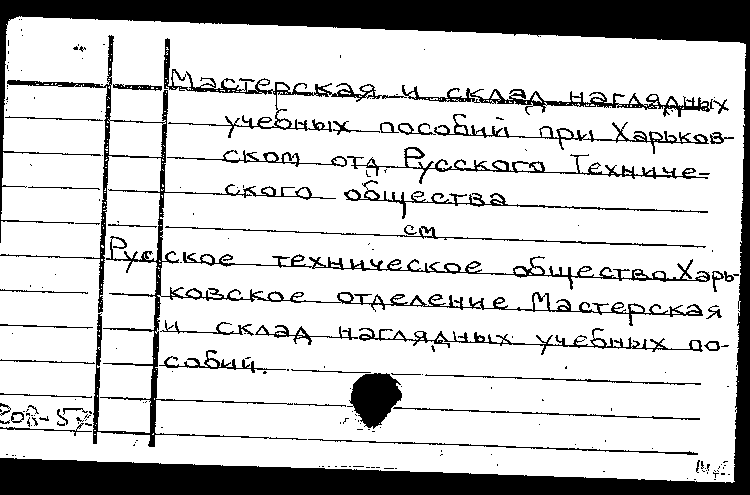 Мастерская и склад наглядных
учебных пособий при Харьков-
ском отд. Русского Техниче-
ского общества
см
Русское техническое общество. Харь-
ковское отделение. Мастерская
и склад наглядных учебных по-
собий.